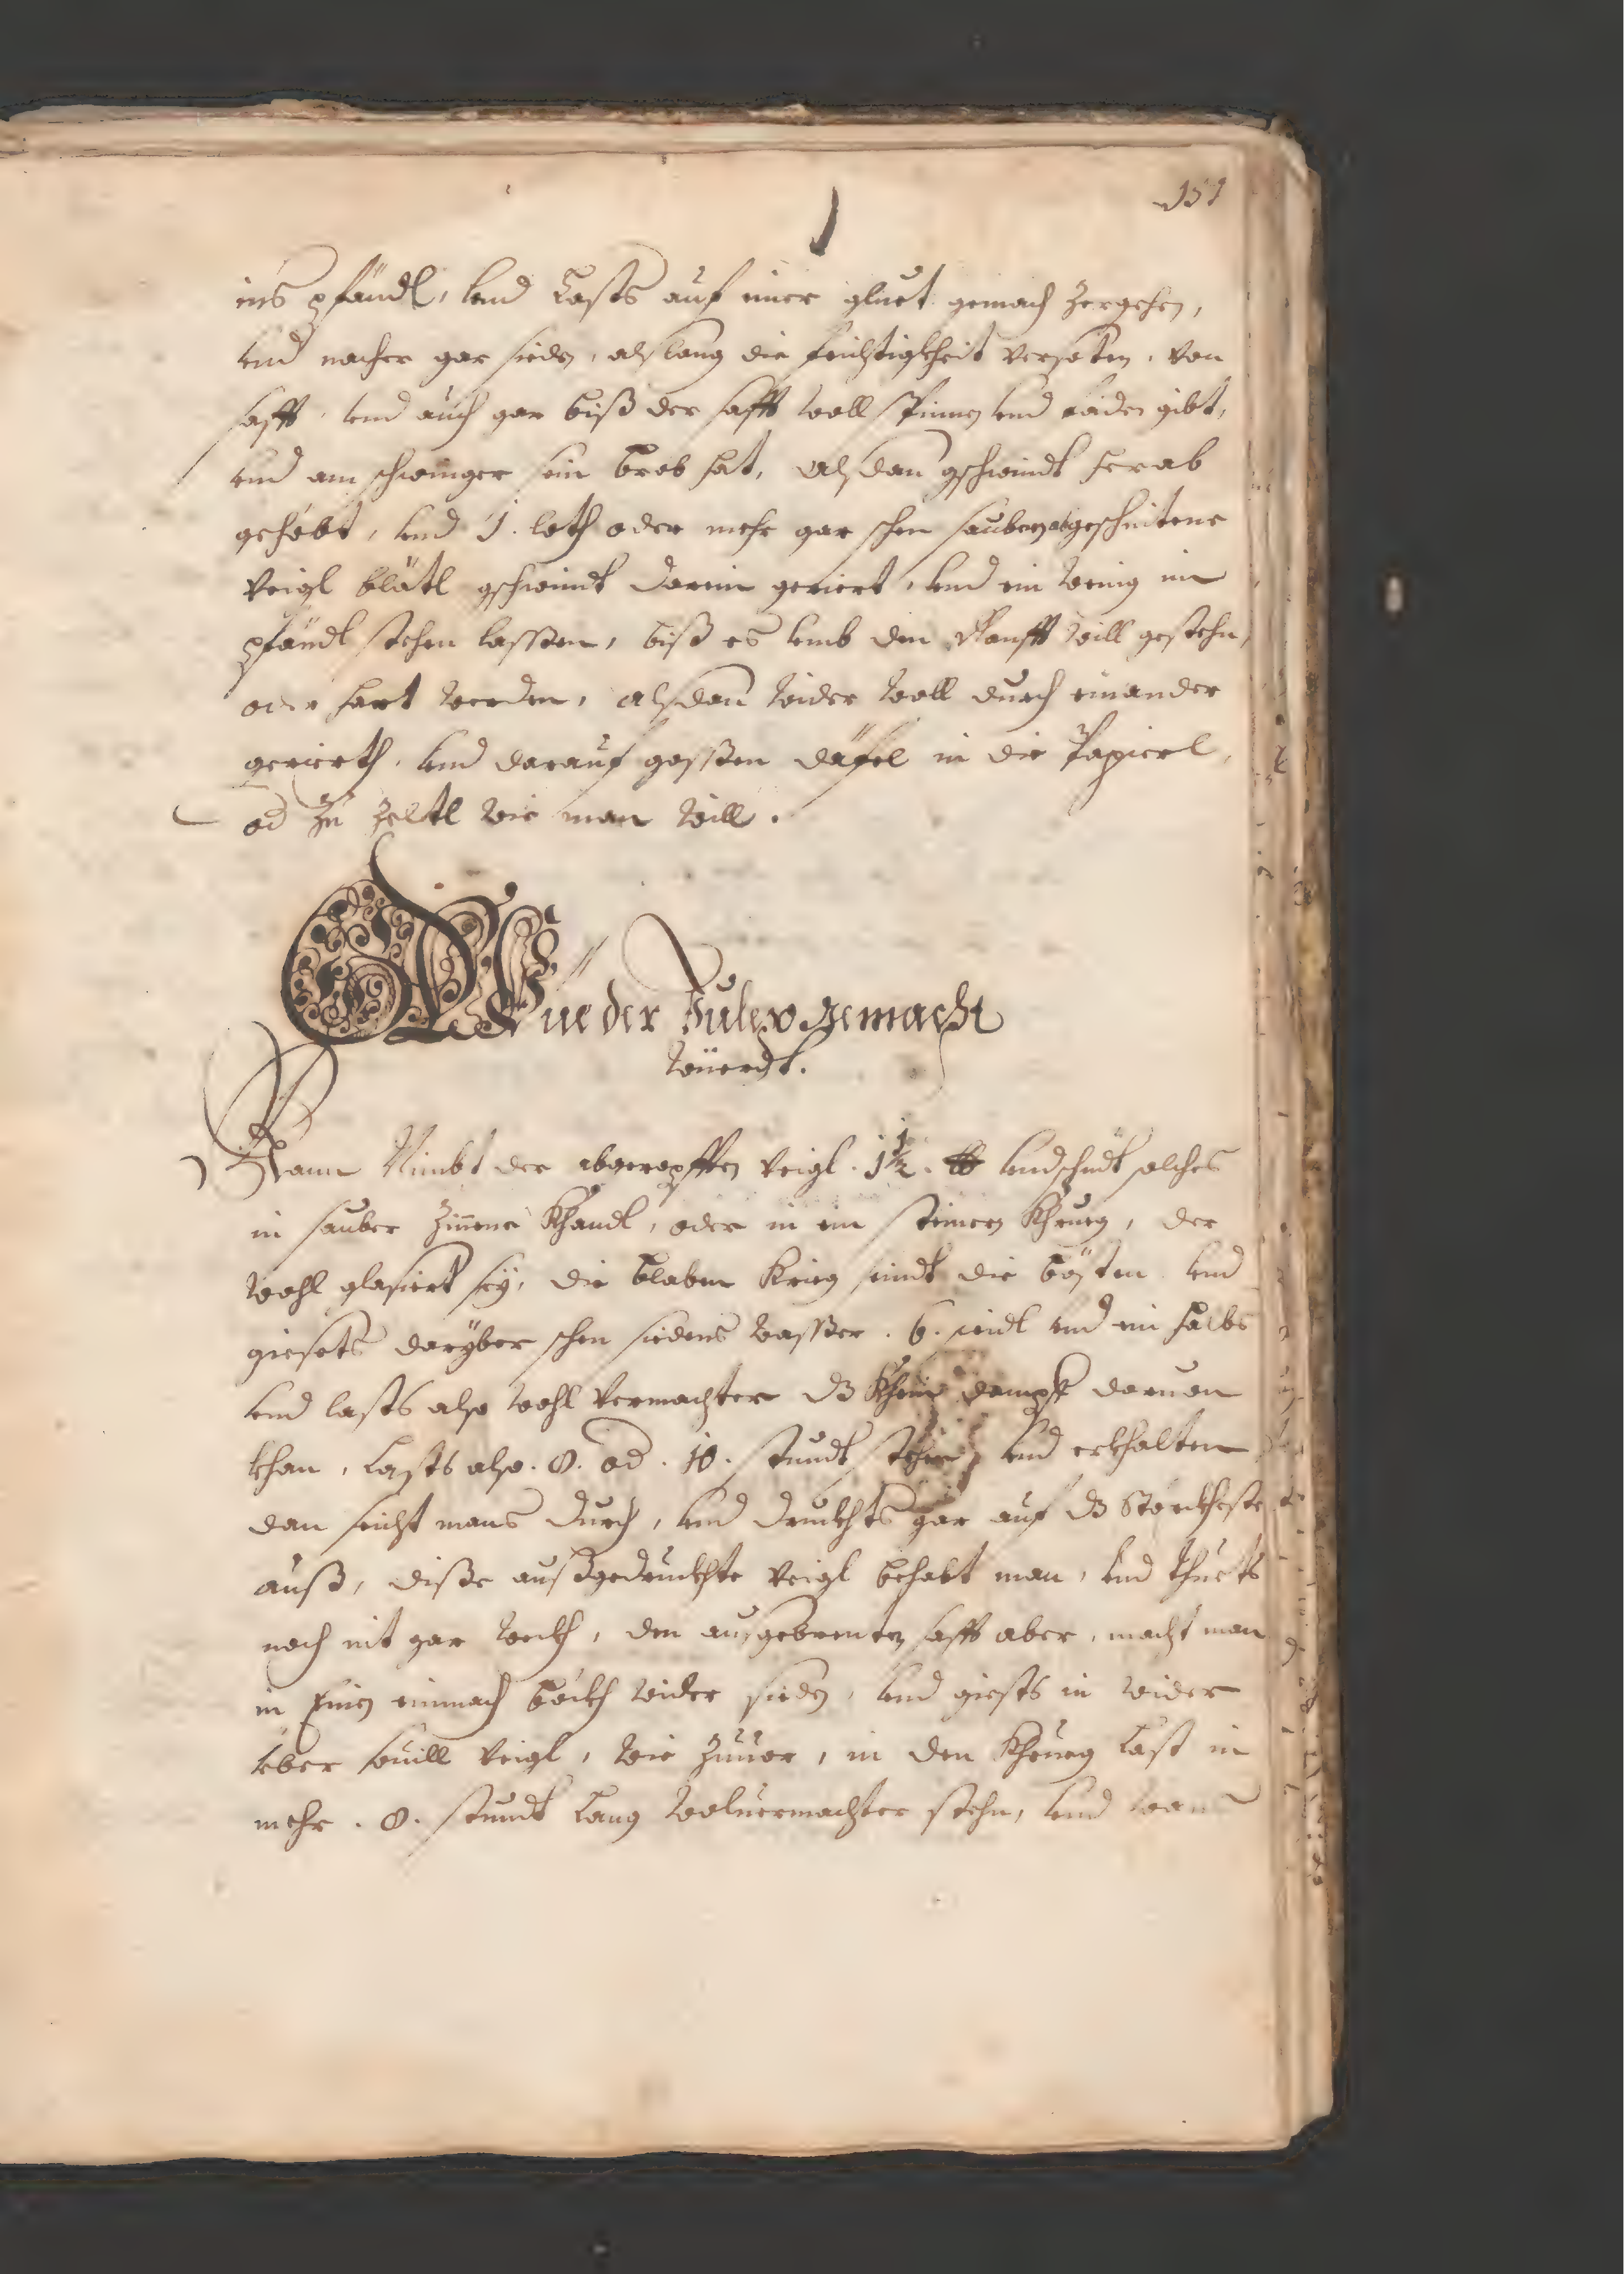 151
ins pfändl, vnd Lasts auf einer gluet gemach zergehen,
vnd nacher gar sieden, alslang die feichtigkheit versoten, von
safft, vnd auch gar biß der safft woll spinnen vnd fäden gibt,
vnd am schwinger sein brob hat, alsdan gschwindt herab
gehebt, vnd 1. loth oder mehr gar schen sauber abgeschnitene
Veigl blätl gschwindt darein geriert, vnd ein wenig im
pfändl stehen lassen, biß es vmb den Ranfft will gestehn,
oder hart werden, alsdan wider woll durch einander
gerierth, vnd darauf gossen däfel in die Papierl,
od zu zeltl wie man will.
Wie der Julep gemacht
würdt.
Mann Nimbt der abgeropfften Veigl. 1½. lb vnd schüdt solches
in sauber Zinene Khandl, oder in ein steinern Khrueg, der
wohl glasiert sey, die blaben Krieg seindt die bösten vnd
giesets daryber schen siedens wasser. 6. seidl vnd ein halbs
vnd lasts also wohl vermachter dz Khein dampff daruon
khan, Lasts also. 8. od. 10. stundt stehen vnd erkhalten
dan seicht mans durch, vnd druckhts gar auf dz Störckheste
auß, disse außgedruckhte Veigl behalt man, vnd thuets
noch nit gar weckh, den ausgebrenten safft aber, macht man
in einmach böckh wider sieden, vnd giests in wider
yber souill Veigl, wie zuuor, in den Khrueg Last in
mehr. 8. stundt Lang woluermachter stehn, vnd wan